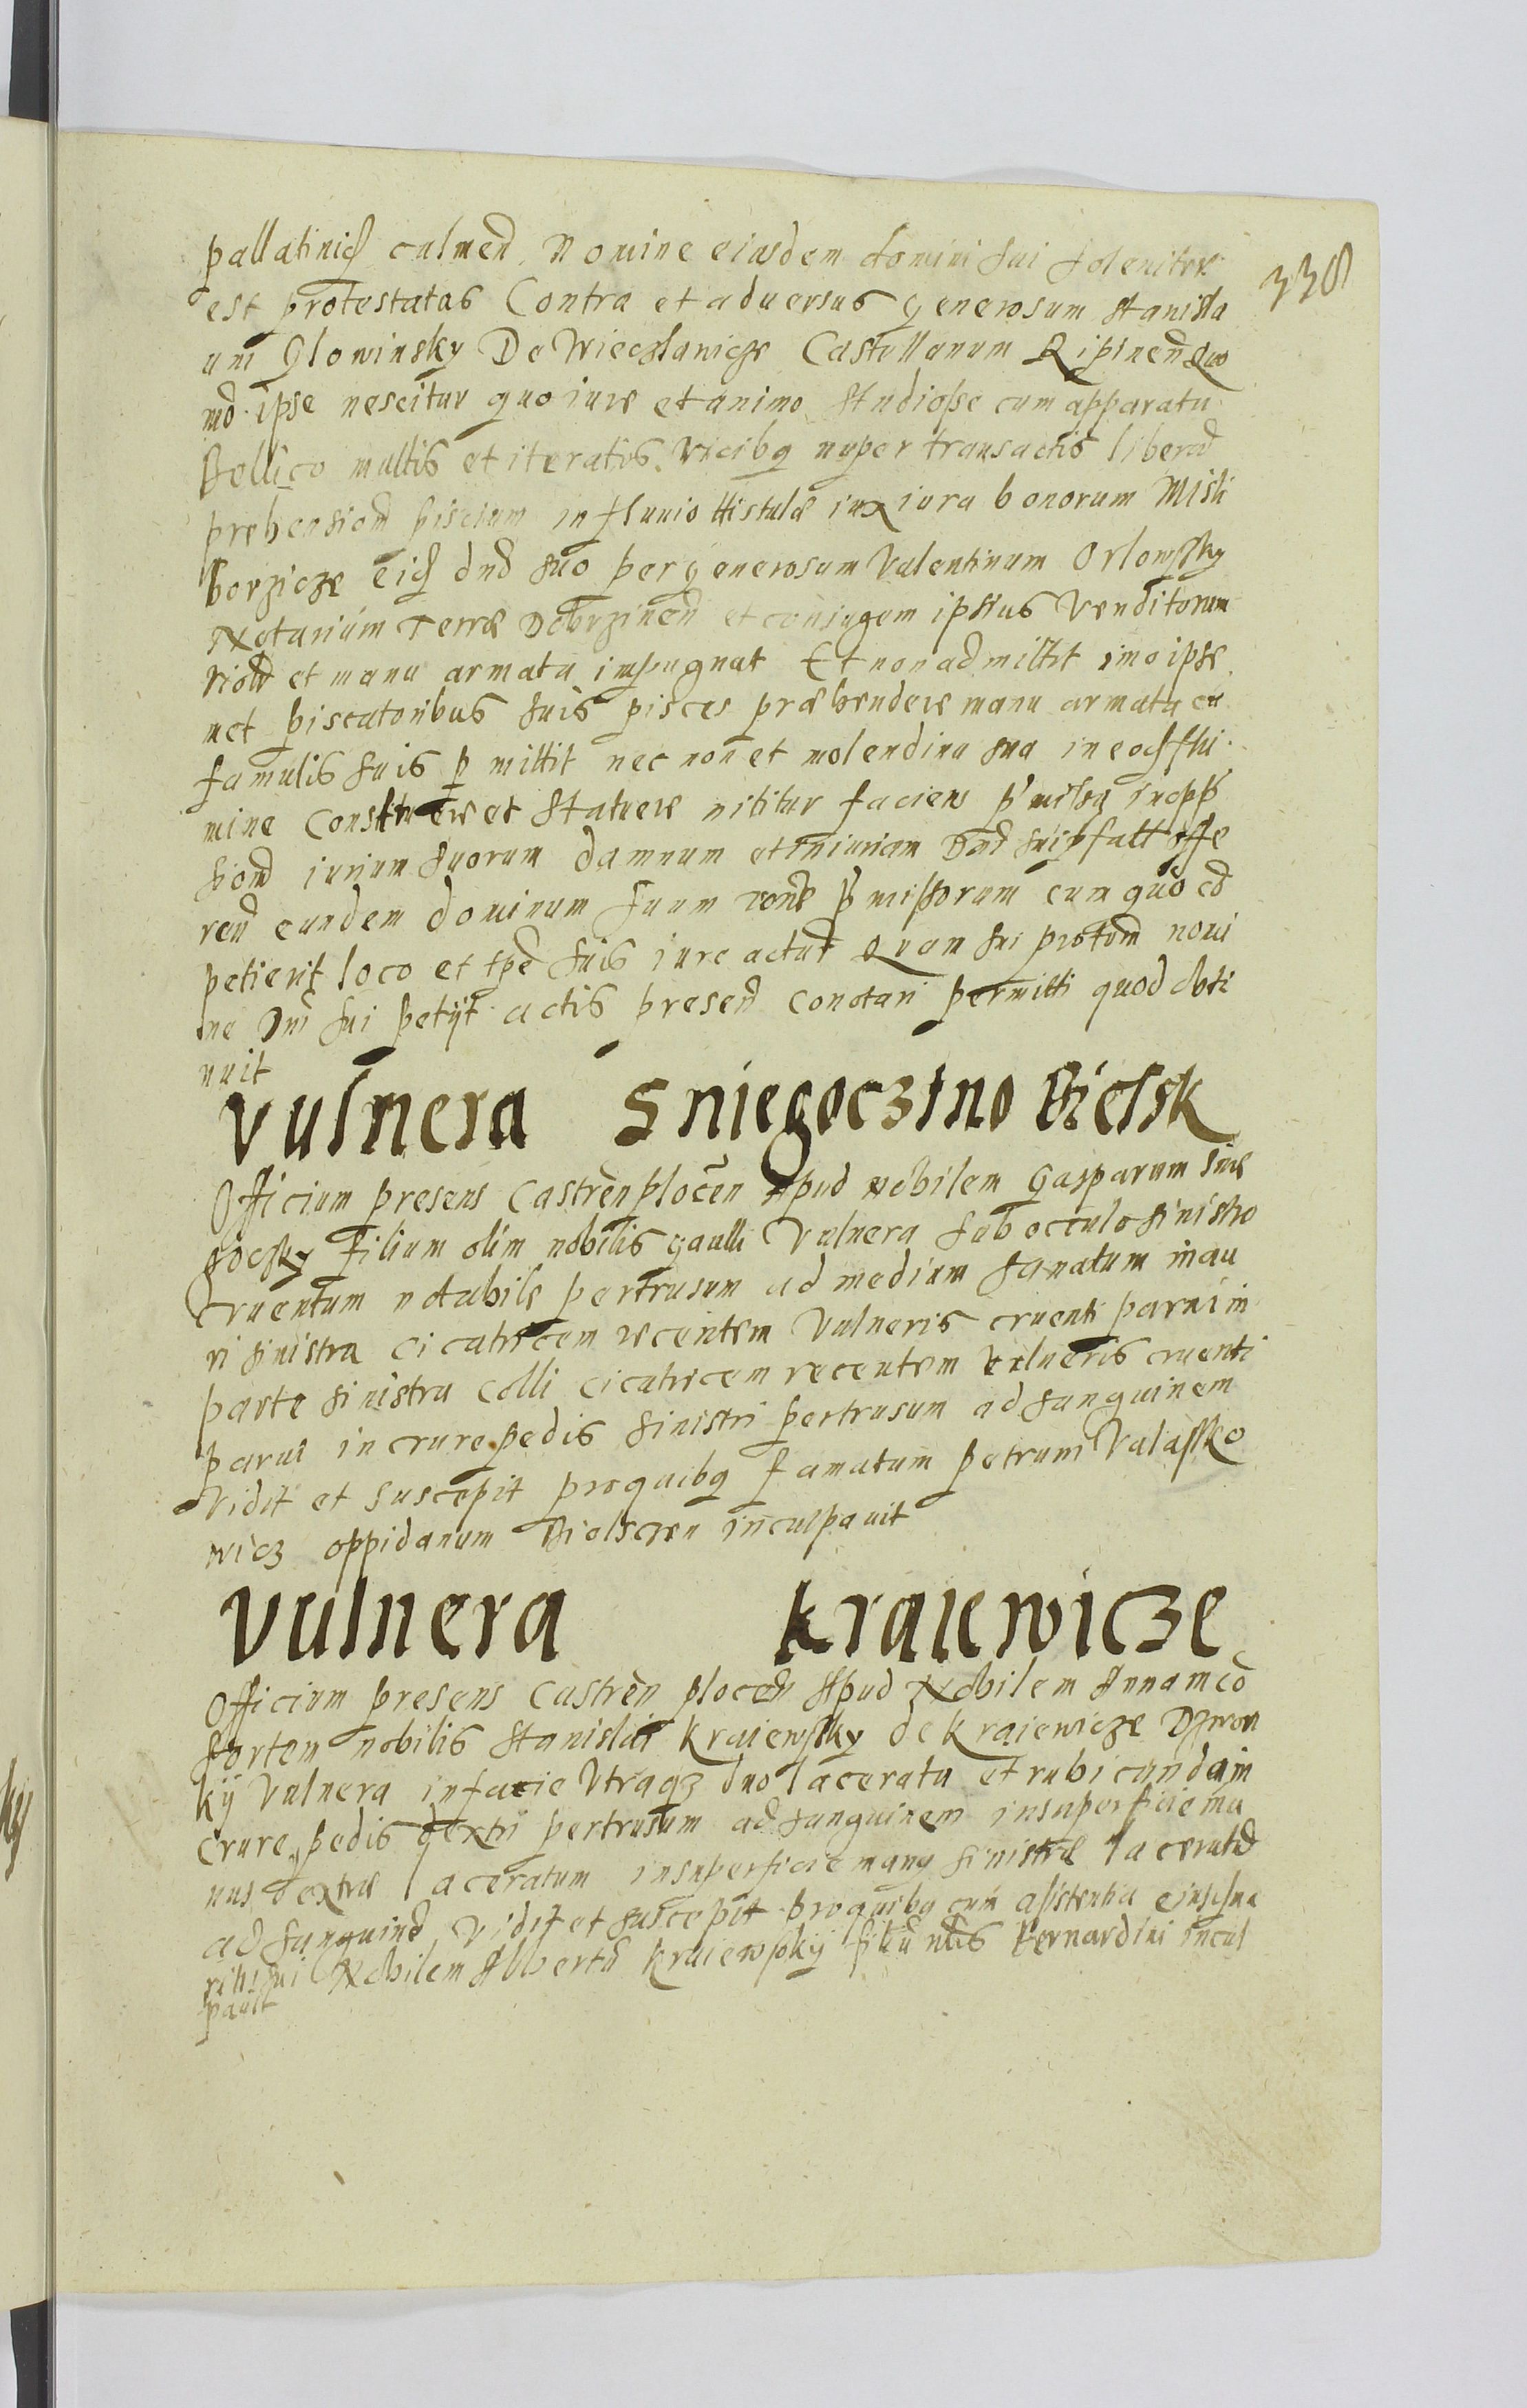 338
pallatinid culmen. Nomine eiusdem domini sui soleniter
est protestatus Contra et aduersus generosum Stanisla
um Glowinsky De Wieczlawicze Castellanum Ripinen Quo
mo ipse nescitur quo iure et animo studiosse cum apparatu
Bellico multis et iteratis Vicibq nuper transactis liberam
prehensionem piscium in fluuio Vistulæ iux iura bonorum Misli
borzicze eid dno suo per generosum Valentinum Orlowsky
Notarium Terræ Dobrzinen et coniugem ipsius Venditorum
violat et manu armata impugnat Et non admittit imo ipse
met piscatoribus suis pisces præhendere manu armata cu
famulis suis p mittit nec non et molendina sua in eod flu
mine Construere et Statuere nititur faciens pmissa in opp
sionem iurium suorum damnum et iniuriam Dni sui p fatt offe
ren eundem dominum suum rone pmissorum cum quo co
petierit loco et tpe suis iure actur Quam sui protom nomi
ne Dni sui petyt actis presen conotari permitti quod obti
nuit
Vulnera Sniegoczino Bielsk
Officium presens Castren plocen Apud Nobilem Gasparum Snie
goczky filium olim nobilis gaulli Vulnera sub occulo sinistro
Cruentum notabile pertrusum ad medium sanatum in au
ri sinistra cicatricem recentem Vulneris cruenti parui in
parte sinistra colli cicatricem recentem Vulneris cruenti
parui in crure pedis sinistri pertrusum ad sanguinem
Vidit et suscepit pro quibq famatum petrum Valassko
wicz oppidanum Bielscen inculpauit
Vulnera Kraiewicze
Officium presens Castren plocen Apud Nobilem Annam co
sortem nobilis Stanislai Kraiewsky de Kraiewicze Dzwon
ky Vulnera in facie Vtraqz duo lacerata et rubicunda in
crure pedis dextri pertrusum ad sanguinem in superficie ma
nus dextræ laceratum in superficie manq sinistræ laceratu
ad sanguine Vidit et suscepit pro quibq cum asistentia eiusd ma
riti sui Nobilem Albertu Kraiewsky filiu nlis Bernardini incul
pauit